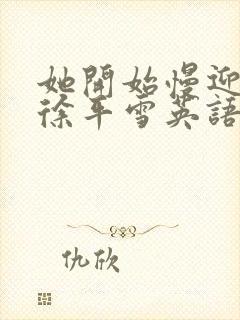 她開始慢迎
徐平雪英語
仇欣